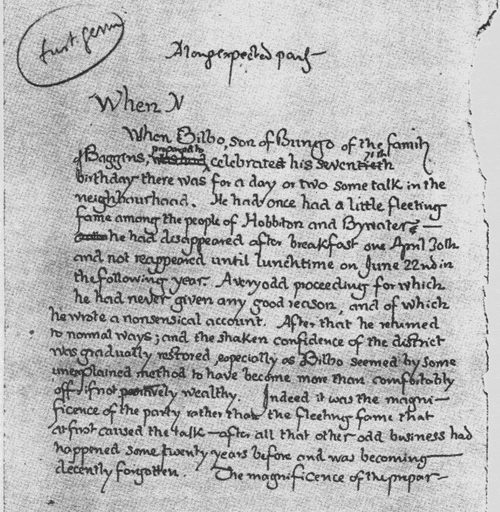 first germ
A long expected party
When N
When Bilbo, son of Bungo of the family
prepared to
of Baggins, celebrated his seventieth
birthday there was for a day or two some talk in the
neighbourhood. He had once had a little fleeting
fame among the people of Hobbiton and Bywater —
he had disappeared after breakfast one April 30th
and not reappeared until lunchtime on June 22nd in
the following year. A very odd proceeding for which
he had never given any good reason, and of which
he wrote a nonsensical account. After that he returned
to normal ways; and the shaken confidence of the district
was gradually restored, especially as Bilbo seemed by some
unexplained method to have become more than comfortably
off, if not positively wealthy. Indeed it was the magni-
ficence of the party rather than the fleeting fame that
at first caused the talk — after all that other odd business had
happened some twenty years before and was becoming
decently forgotten. The magnificence of the prepar-